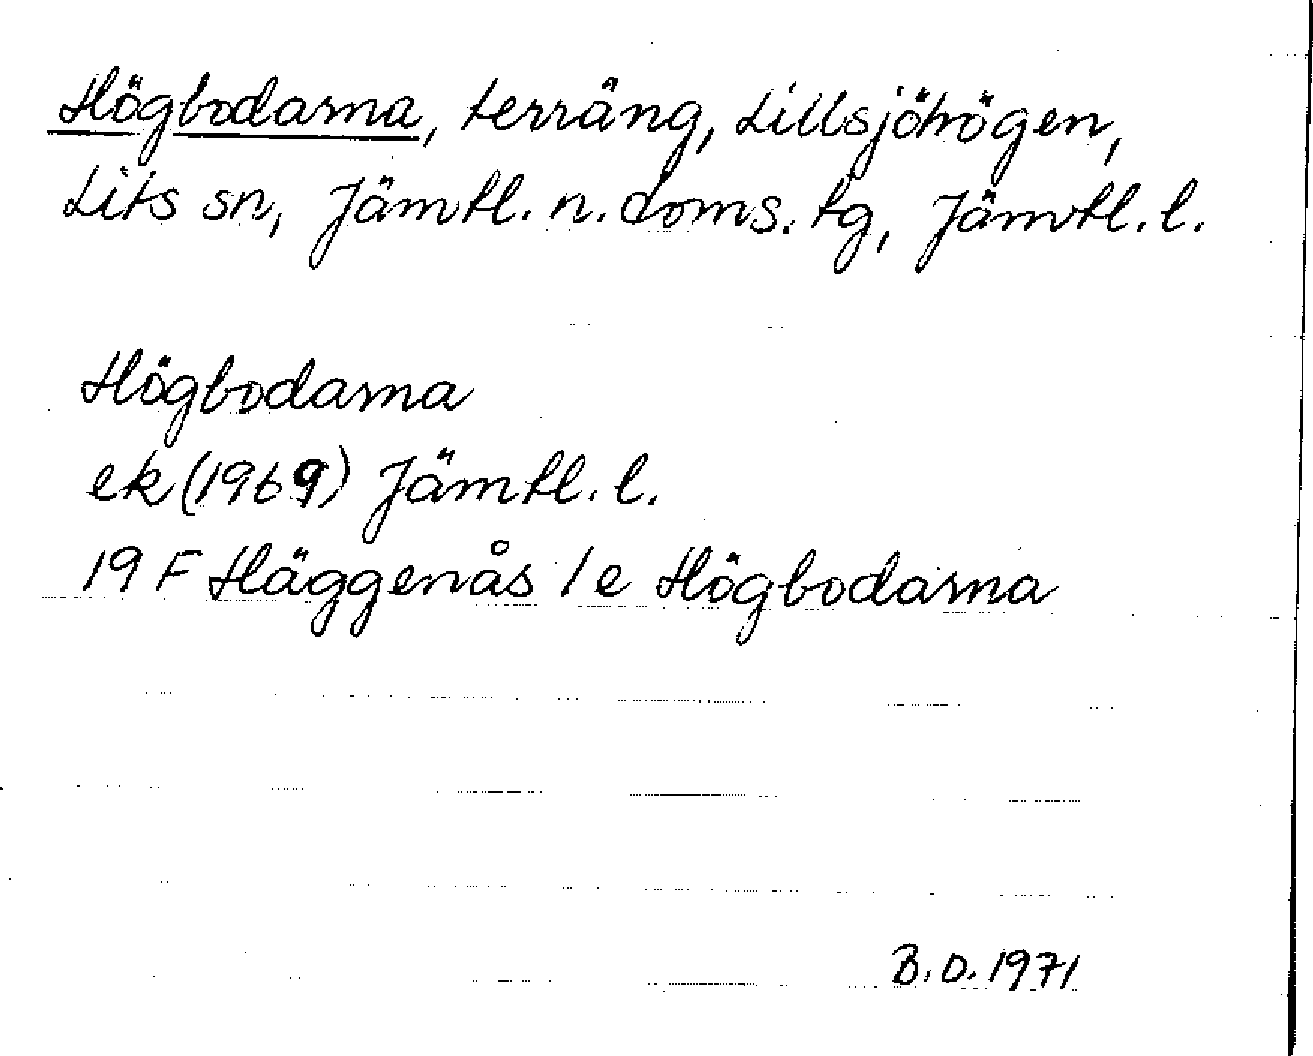 Högbodarna, terräng, Lillsjöhögen,
Lits sn, Jämtl. n. doms. tg, Jämtl. l.
Högbodarna
ek (1969) Jämtl. l.
19 F Häggenås 1 e Högbodarna
B. O. 1971